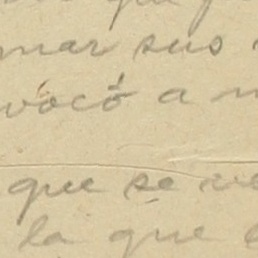 que
mar sus
vocó a
que se ve
la que